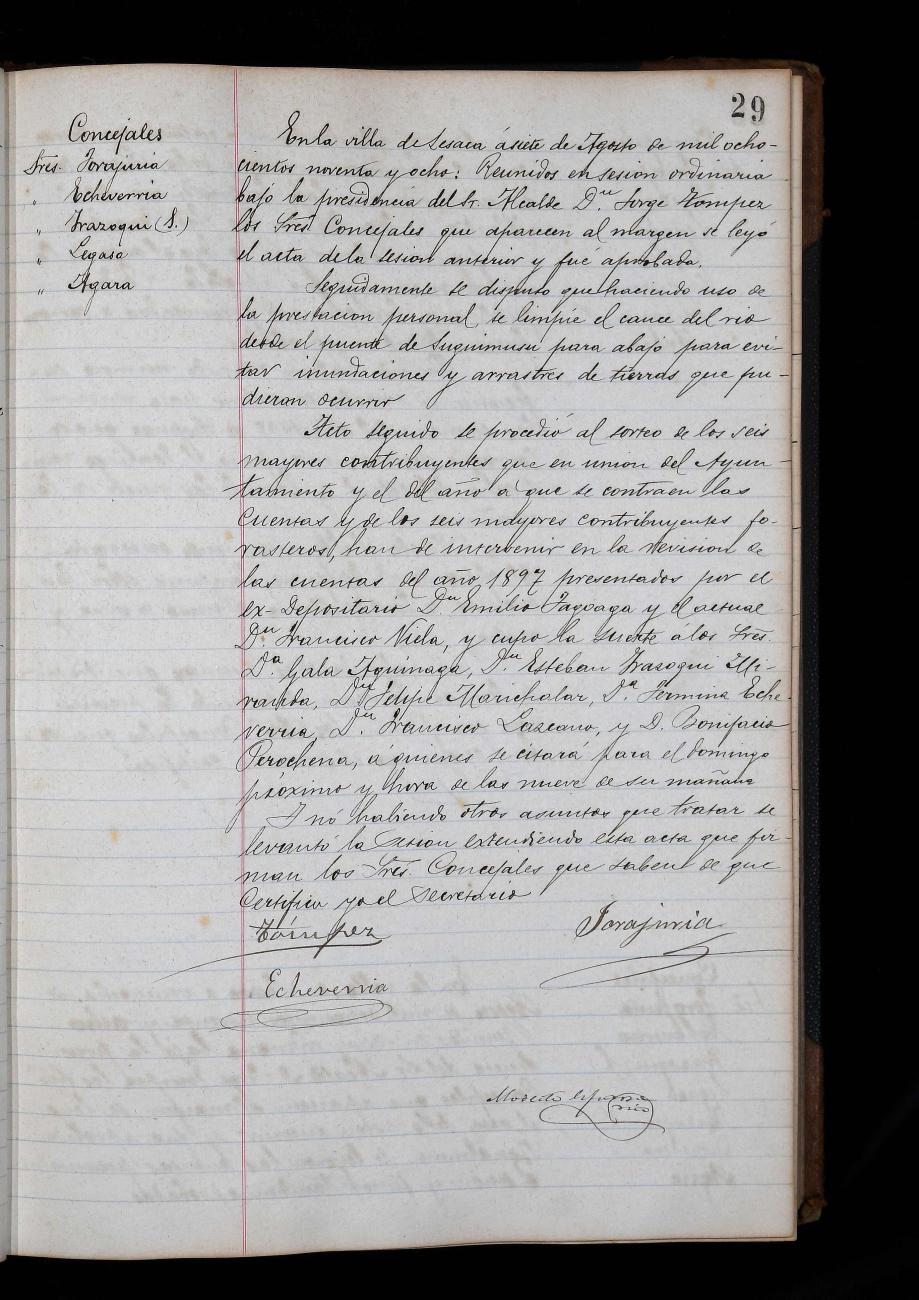 29
Concejales
Sres. Jorajuria
" Echeverria
" Irazoqui (S.)
" Legasa
" Agara
En la villa de Lesaca á siete de Agosto de mil ocho-
cientos noventa y ocho: Reunidos en sesion ordinaria
bajo la presidencia del Sr. Alcalde Dn. Jorge Tompez
los Sres Concejales que aparecen al margen se leyó
el acta de la sesion anterior y fué aprobada.
Seguidamente se dispuso que haciendo uso de
la prestacion personal, se limpie el cauce del rio
desde el puente de Suguimusu para abajo para evi-
tar inundaciones y arrastres de tierras que pu-
dieran ocurrir
Acto seguido se procedió al sorteo de los seis
mayores contribuyentes que en union del Ayun-
tamiento y el del año á que se contraen las
cuentas y de los seis mayores contribuyentes fo-
rasteros, han de intervenir en la revision de
las cuentas del año 1897 presentados por el
ex-Depositario Dn Emilio Fagoaga y el actual
Dn. Francisco Viela, y cupo la suerte á los Sres.
Da. Gala Aguinaga, Dn. Esteban Irazoqui Mi-
randa, Dn Felipe Marichalar, Da. Fermina Eche-
verria, Dn. Francisco Lazcano, y D. Bonifacio
Perochena, á quienes se citará para el domingo
próximo y hora de las nueve de su mañana
Y nó habiendo otros asuntos que tratar se
levantó la sesion extendiendo esta acta que fir-
man los Sres. Concejales que saben de que
Certifico yo el Secretario
Tómpez Jorajuria
Echeverria
Modesto